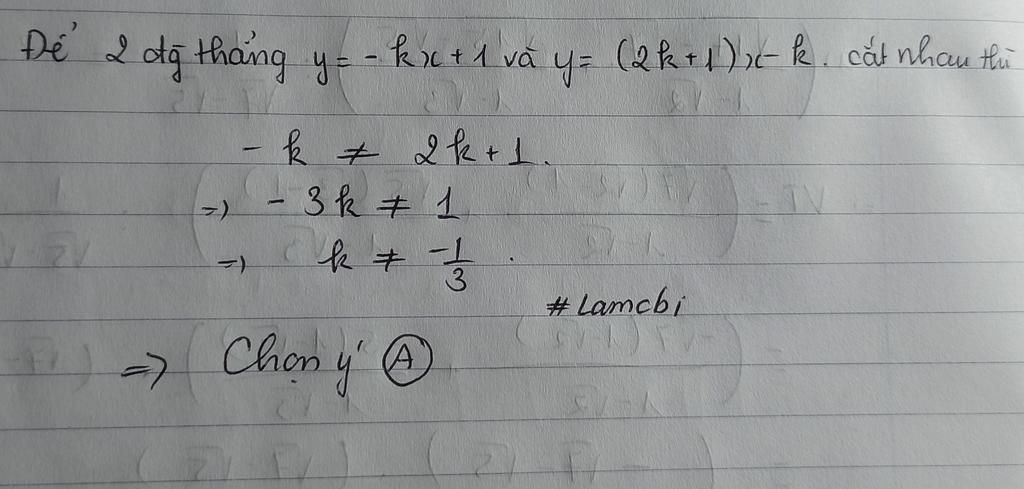 Để 2 đg̃ thẳng y = - kx + 1 và y = (2k+1)x - k. cắt nhau thì
- k ≠ 2k + 1.
=> - 3k ≠ 1
=> k ≠ -1/3.
# Lamcbi
=> Chọn ý Ⓐ